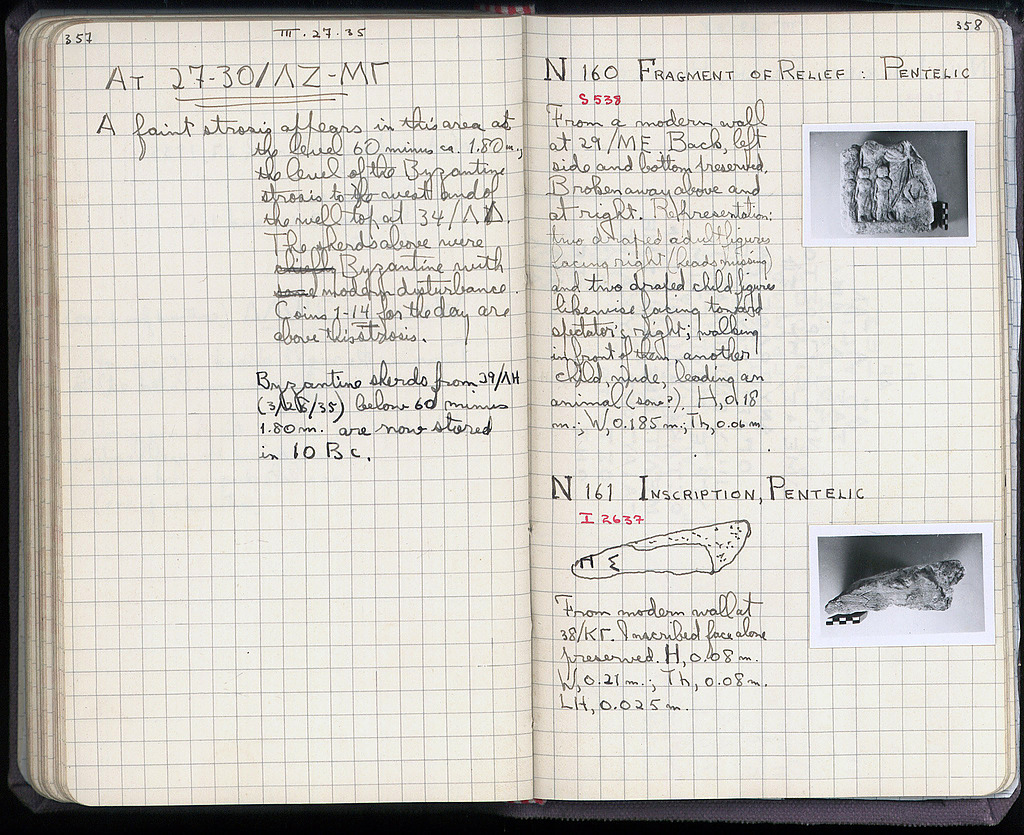 357
III.27.35
AT 27-30/ΛΖ-ΜΓ
A faint strosis appears in this area at
the level 60 minus ca. 1.80 m.,
the level of the Byzantine
strosis to the west and of
the well top at 34/ΛΔ.
The sherds above were
Byzantine with
some modern disturbance.
Coins 1-14 for the day are
above this strosis.
Byzantine sherds from 39/ΛΗ
(3/26/35) below 60 minus
1.80 m. are now stored
in 10 B c.
358
N 160 FRAGMENT OF RELIEF : PENTELIC
S 538
From a modern wall
at 29/ΜΕ. Back, left
side and bottom preserved.
Broken away above and
at right. Representation:
two draped adult figures
facing right (heads missing)
and two draped child figures
likewise facing toward
spectator's right; walking
in front of them, another
child, nude, leading an
animal (sow?). H, 0.18
m.; W, 0.185 m.; Th, 0.06 m.
N 161 INSCRIPTION, PENTELIC
I 2637
From modern wall at
38/ΚΓ. Inscribed face alone
preserved. H, 0.08 m.
W, 0.21 m.; Th, 0.08 m.
LH, 0.025 m.